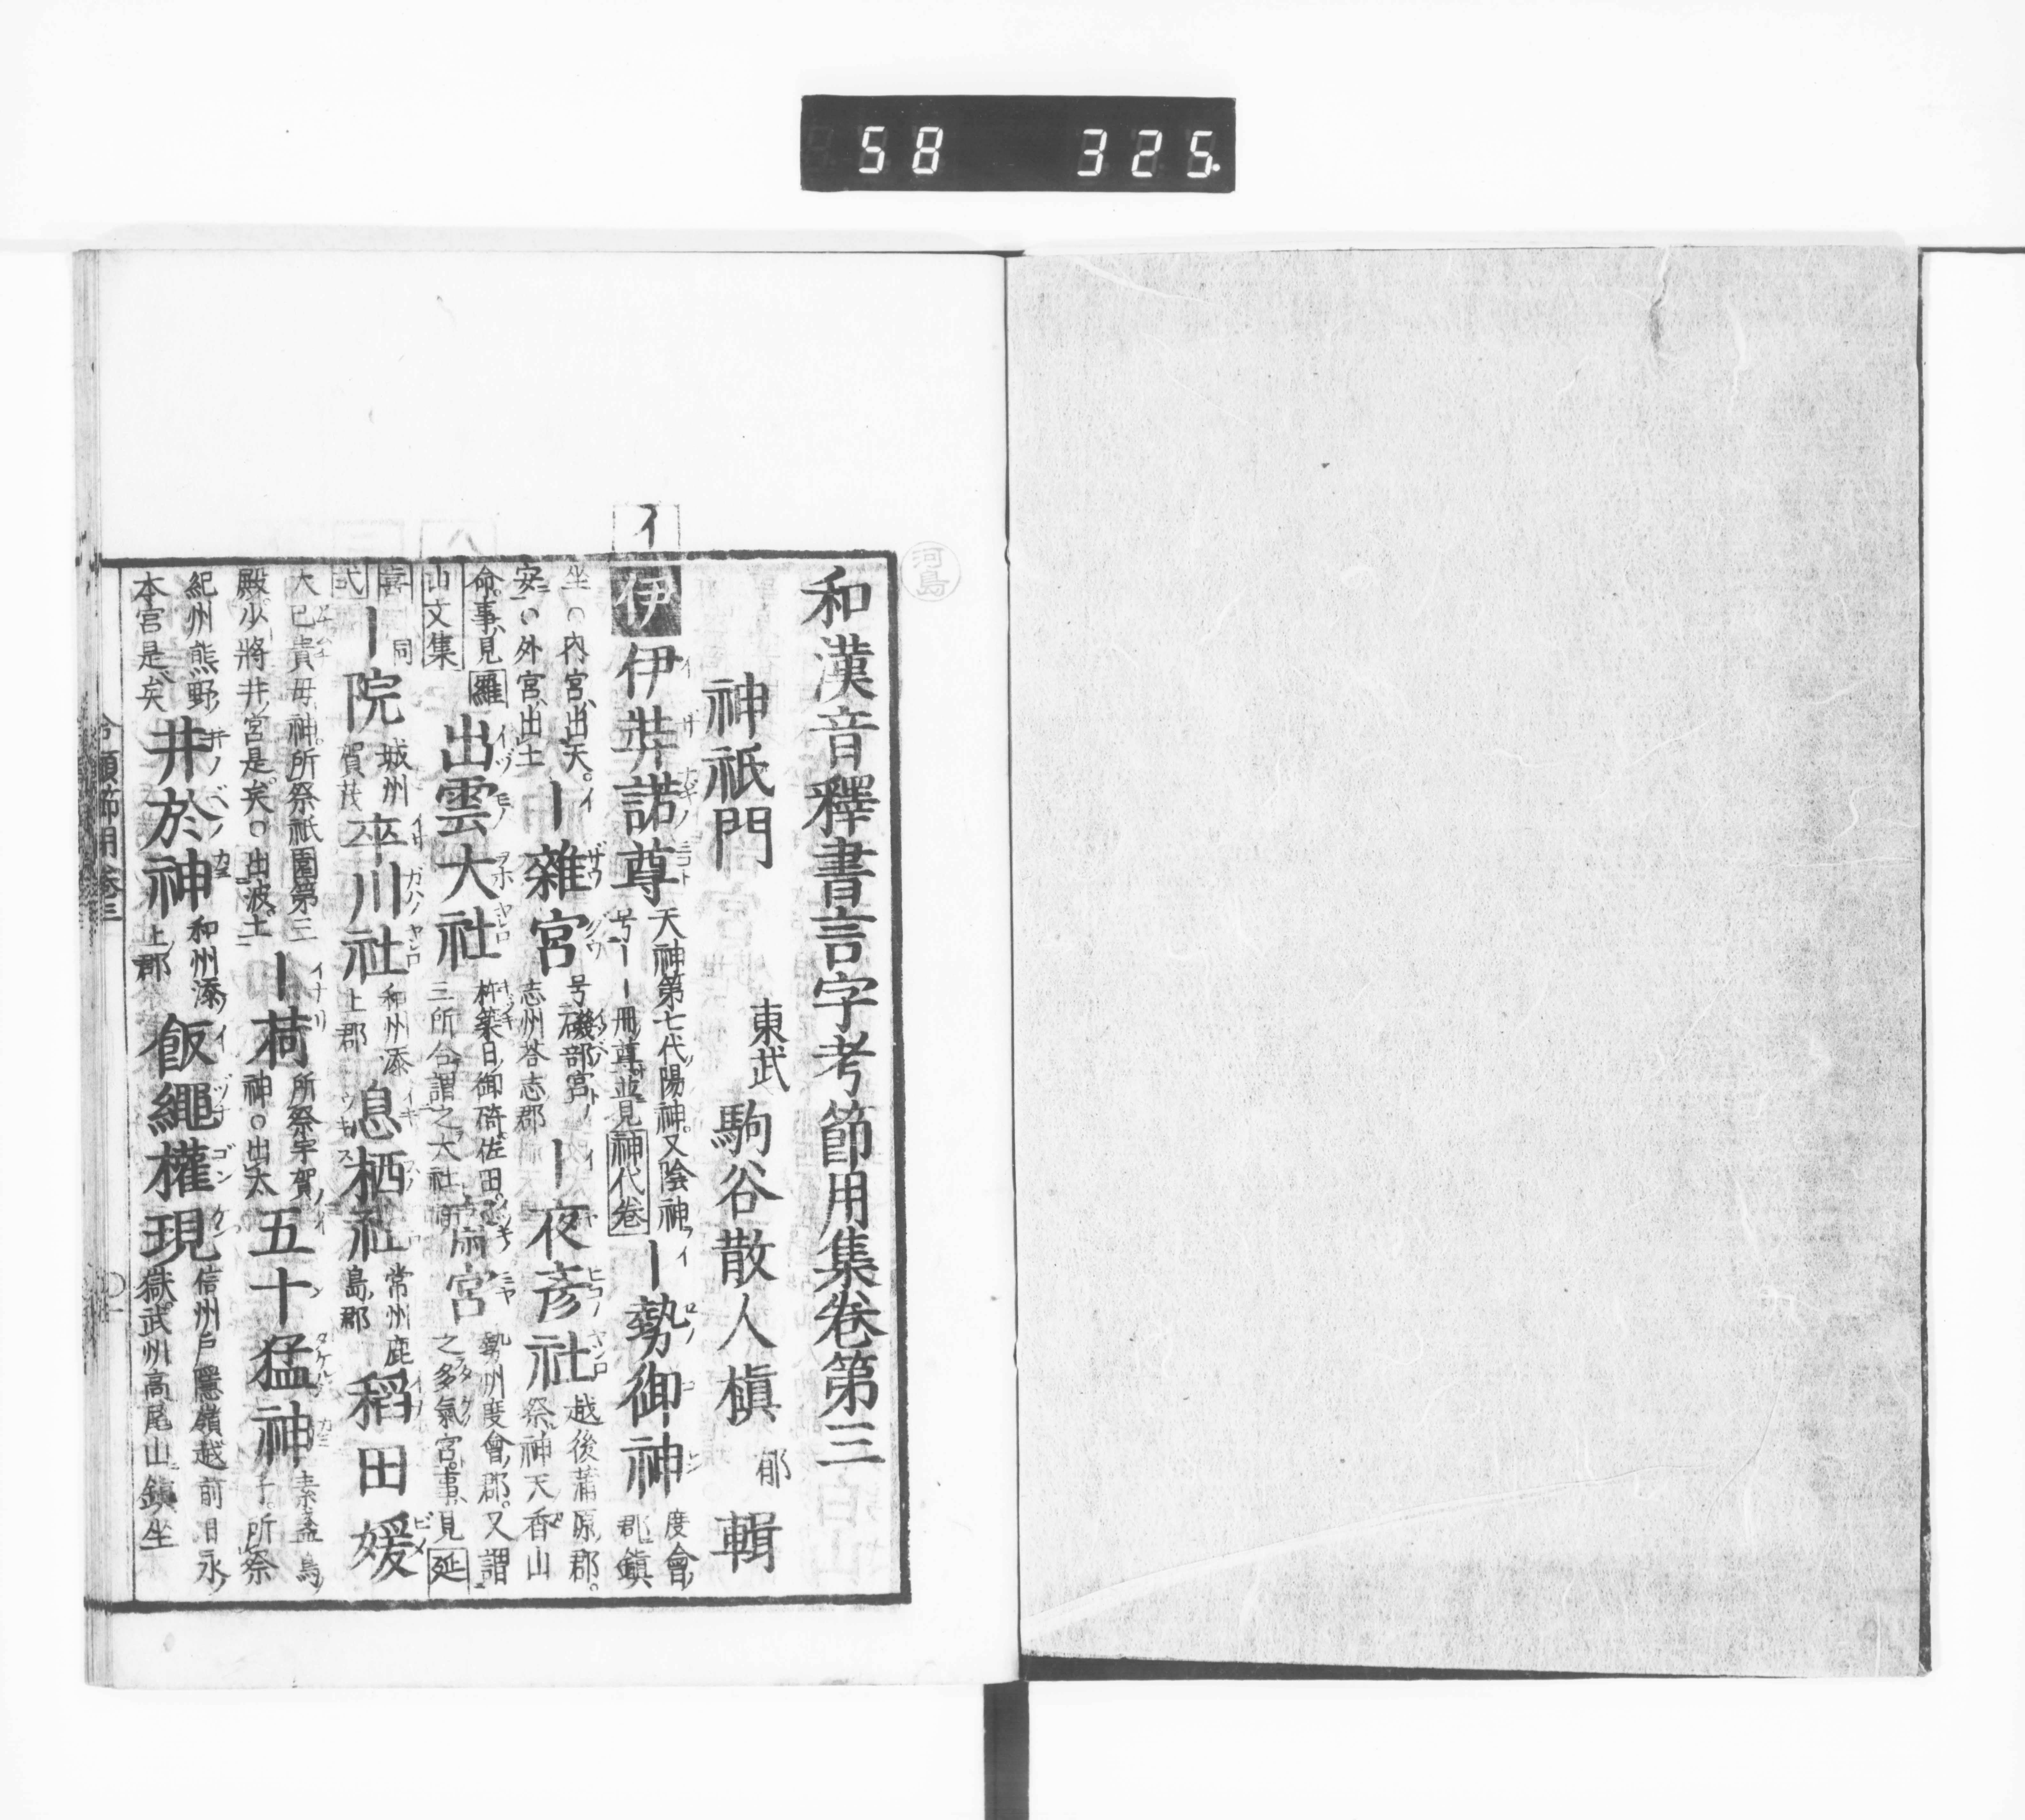 58 325
河島
和漢音釋書言字考節用集卷第三
神祇門 東武 駒谷散人槇 郁 輯
イ
伊 伊弉諾尊 天神第七代陽神又陰神号｜｜冊尊並見神代卷 ｜勢御神 度會郡鎮
坐○内宮出天安○外宮出土 ｜雜宮 号礒部宮志州荅志郡 ｜夜彦社 越後蒲原郡祭神天香山
命事見羅山文集 出雲大社 杵築日御碕佐田三所合謂之大社 齋宮 勢州度會郡又謂之多氣宮事見延
喜式 ｜院 同城州賀茂 率川社 和州添上郡 息栖社 常州鹿島郡 稻田媛
大已貴母神所祭祇園第三殿少將井宮是矣○出波土 ｜荷 所祭宇賀神○出太 五十猛神 素盞烏子所祭
紀州熊野本宮是矣 井於神 和州添上郡 飯繩權現 信州戸隱嶺越前日永嶽武州高尾山鎮坐